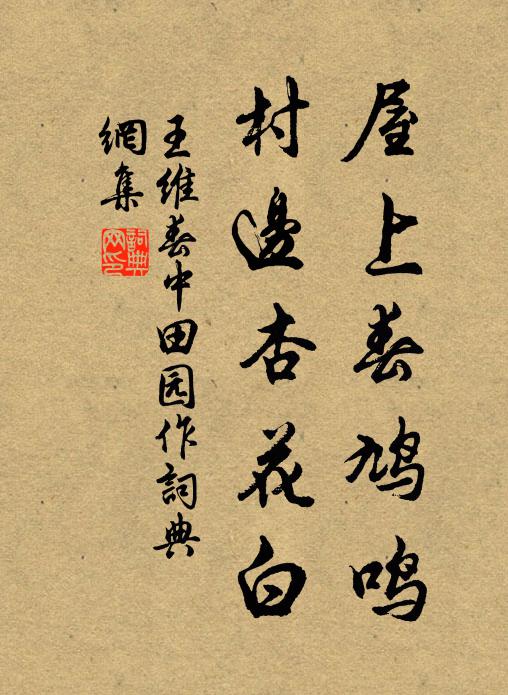 屋上春鸠鸣
村邊杏花白
王維春中田园作詞典
網集
詞典
网印